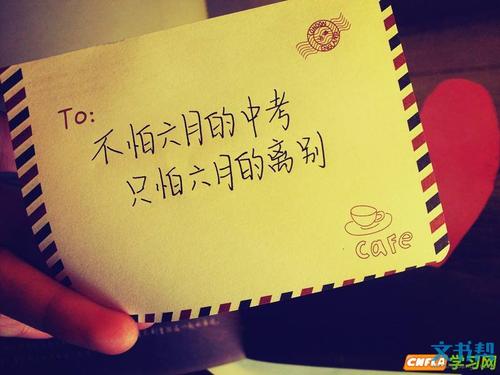 To:
不怕六月的中考
只怕六月的离别
cafe
文书帮
CNFLA学习网